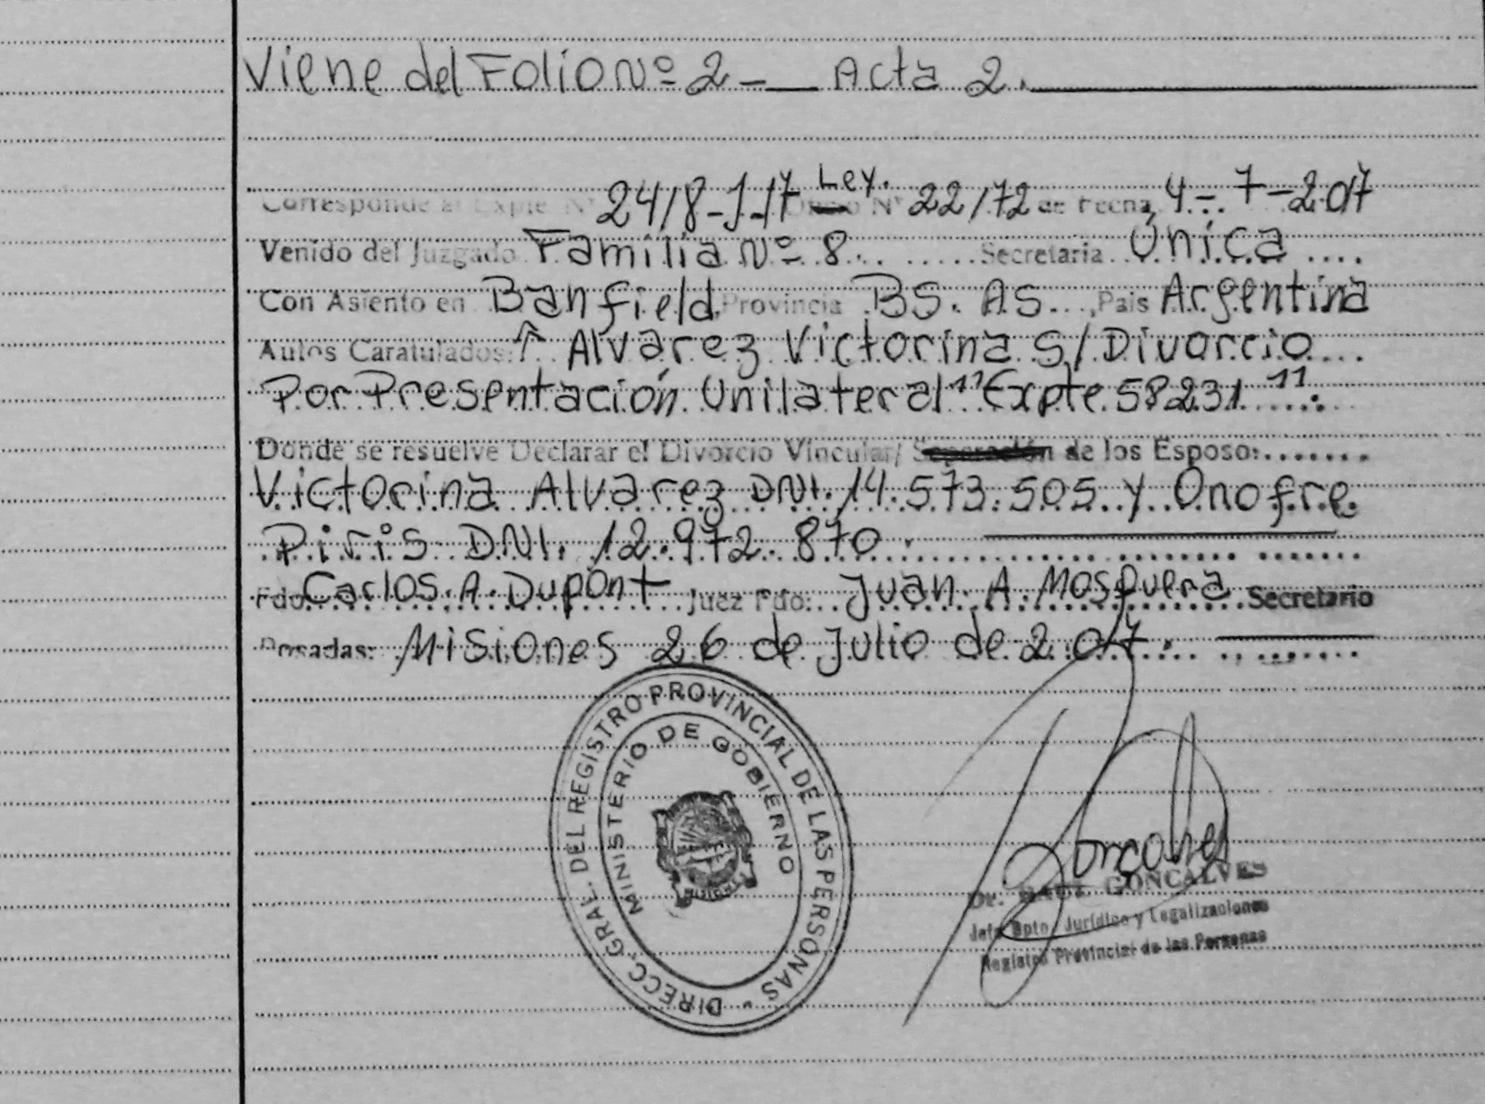 Viene del Folio Nº 2 - Acta 2.
Corresponde al Expte Nº 24/8-J-17 Ley. Oficio Nº 22/72 de Fecha 4-7-2017
Venido del Juzgado Familia Nº 8 Secretaria Única
Con Asiento en Banfield Provincia BS. AS. , Pais Argentina
Autos Caratulados: Alvarez Victorina S/ Divorcio
Por Presentación Unilateral" Expte 58231 ".
Donde se resuelve Declarar el Divorcio Vincular/ Separación de los Esposo:
Victorina Alvarez DNI. 14.573.505 y Onofre
Piris DNI. 12.972.870.
Fdo: Carlos A. Dupont Juez Fdo: Juan A. Mosquera Secretario
Posadas: Misiones 26 de Julio de 2017.
DIRECC. GRAL. DEL REGISTRO PROVINCIAL DE LAS PERSONAS -
MINISTERIO DE GOBIERNO
Dr. RAUL GONCALVES
Jefe Dpto. Jurídico y Legalizaciones
Registro Provincial de las Personas